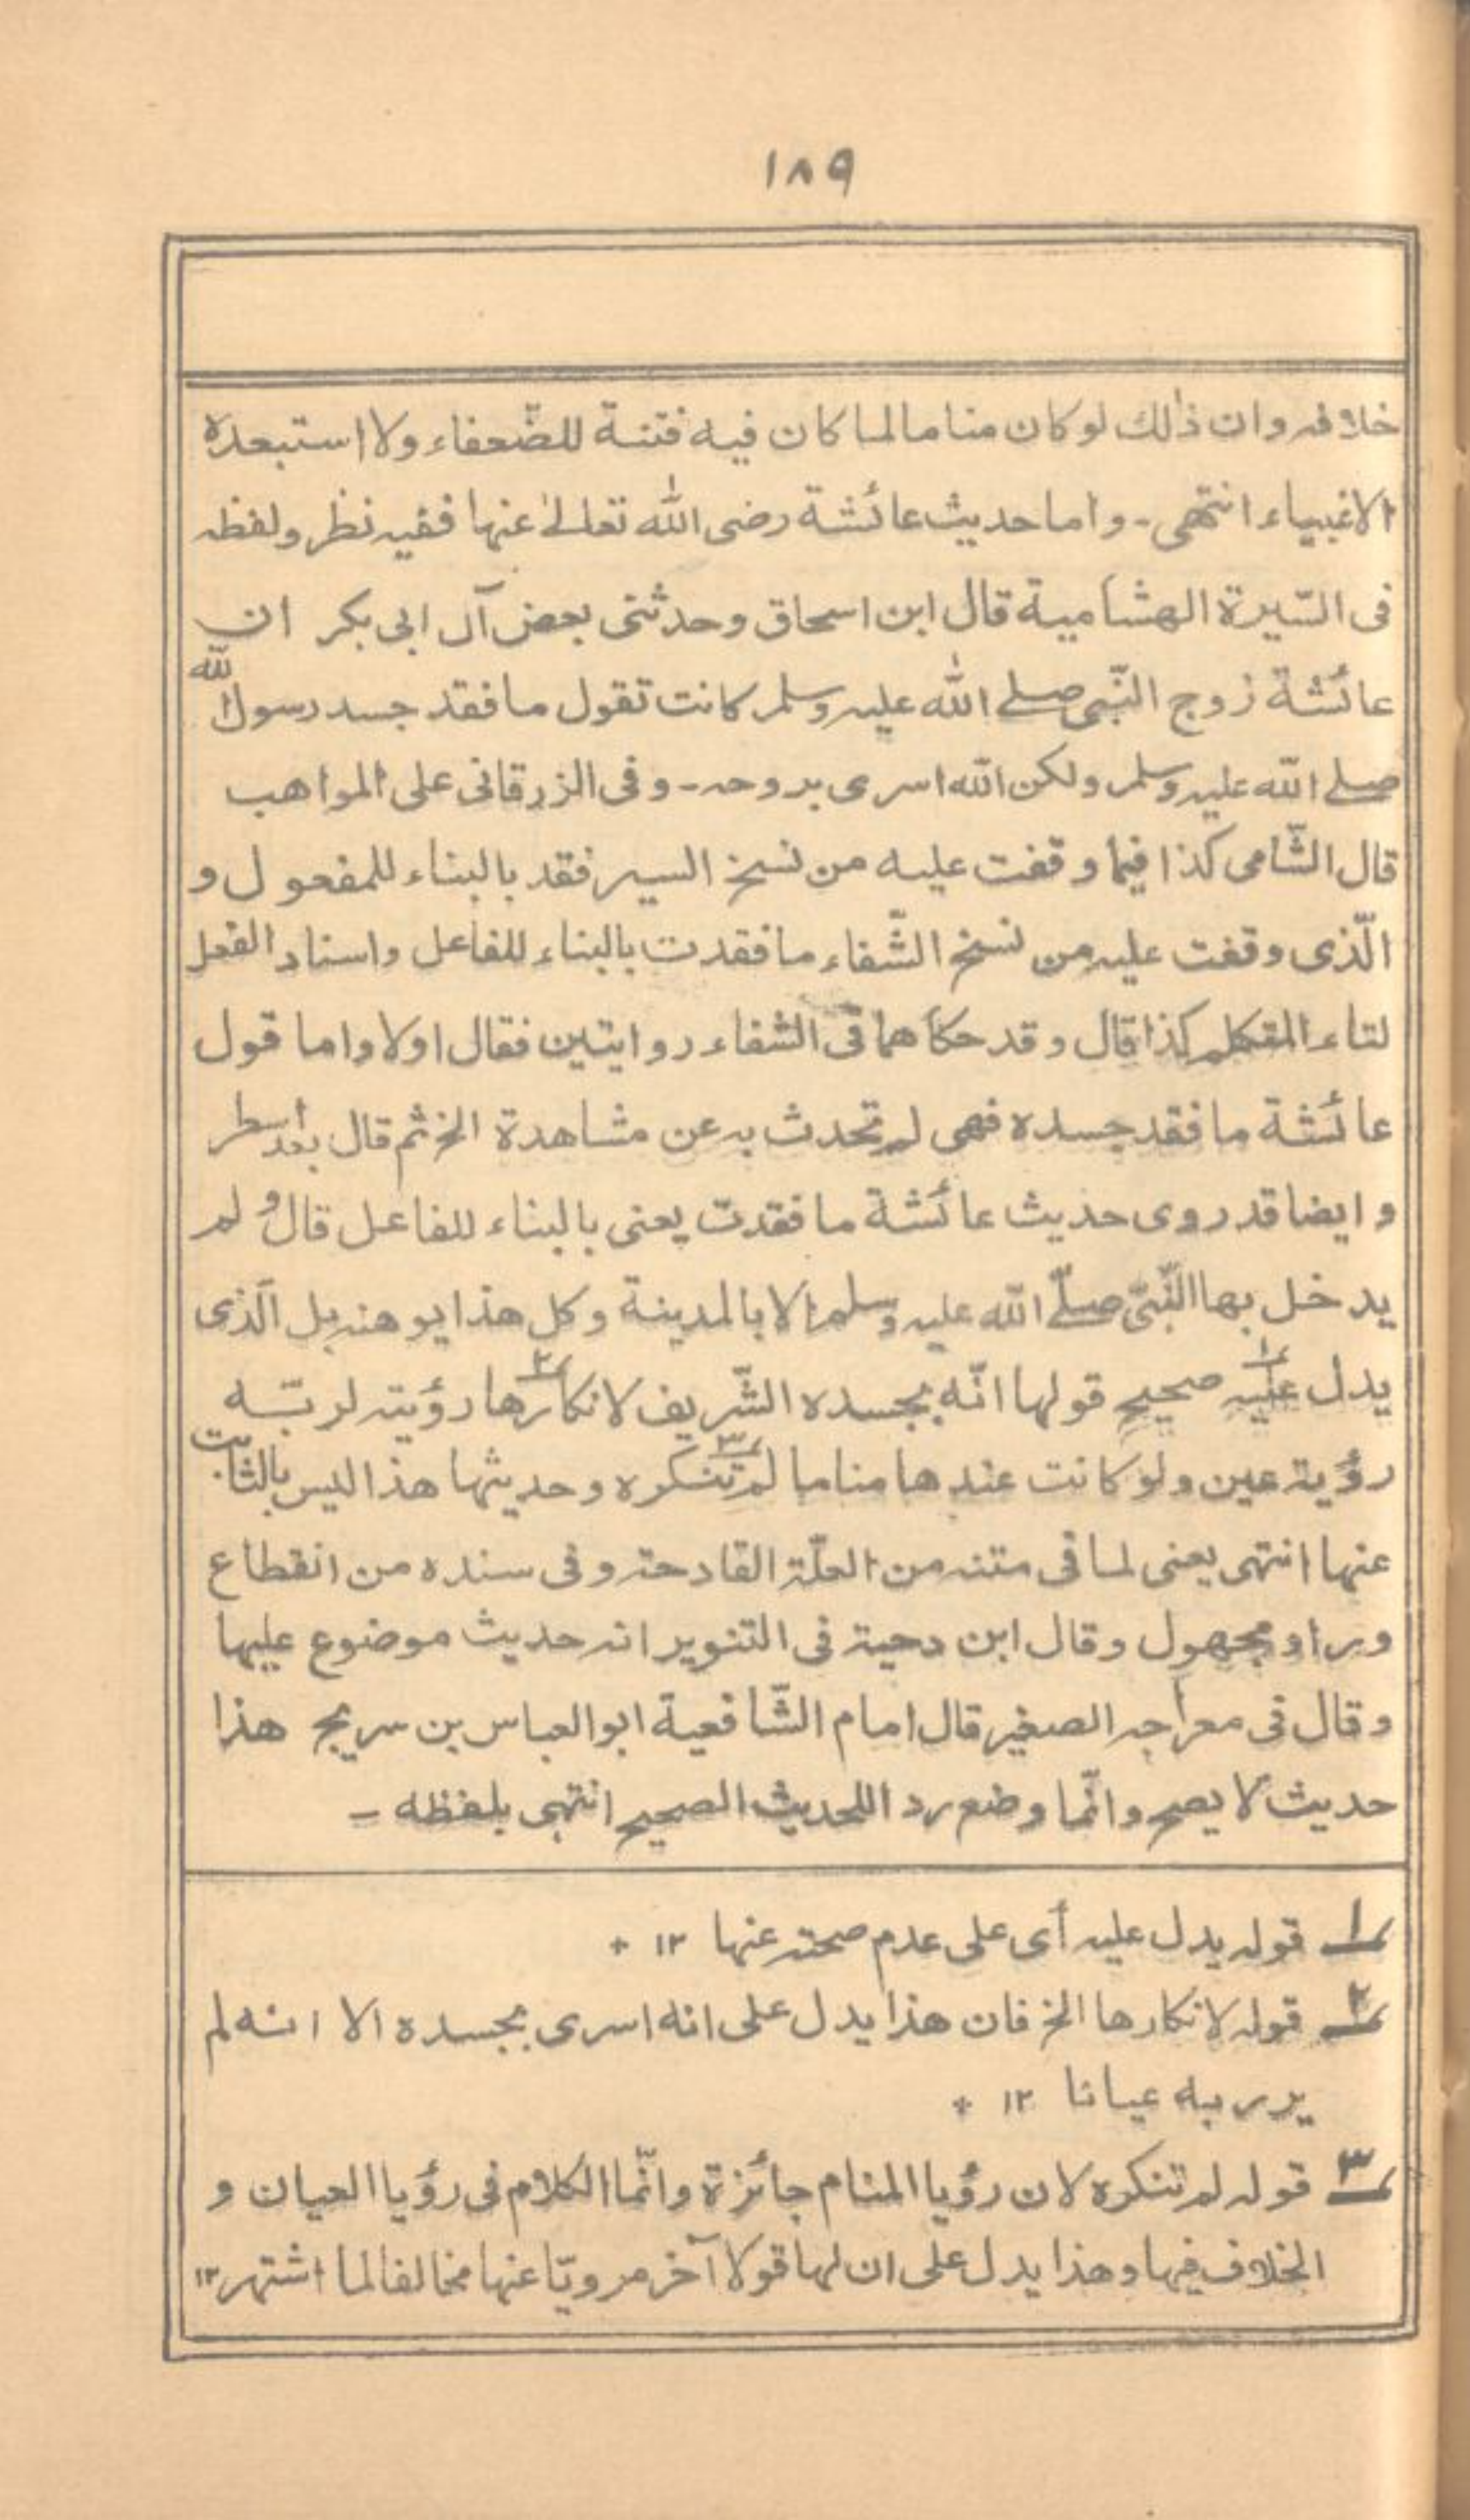 ١٨٩
خلافه وان ذٰلك لو كان مناما لما كان فيه فتنة للضّعفاء ولا استبعده
الاغبياء انتهى ـ واما حديث عائشة رضى الله تعالىٰ عنها ففيه نظر ولفظه
فى السّيرة الهشامية قال ابن اسحاق وحدثنى بعض آل ابى بكر ان
عائشة زوج النّبى صلے الله عليه وسلم كانت تقول ما فقد جسد رسول الله
صلے الله عليه وسلم ولكن الله اسرى بروحه ـ وفى الزرقانى على المواهب
قال الشّامى كذا فيما وقفت عليه من نسخ السير فقد بالبناء للمفعول و
الّذى وقفت عليه من نسخ الشّفاء ما فقدت بالبناء للفاعل واسناد الفعل
لتاء المتكلم كذا قال وقد حكاهما فى الشفاء روايتين فقال اولا واما قول
عائشة ما فقد جسده فهى لم تحدث به عن مشاهدة الخ ثم قال بعد اسطر
و ايضا قد روى حديث عائشة ما فقدت يعنى بالبناء للفاعل قال و لم
يدخل بها النّبىّ صلّے الله عليه وسلم الا بالمدينة وكل هذا يوهنه بل الّذى
يدل عليه ١ صحيح قولها انّه بجسده الشّريف لانكارها ٢ رؤيته لربّه
رؤية عين ولو كانت عندها مناما لم تنكره ٣ وحديثها هذا ليس بالثابت
عنها انتهى يعنى لما فى متنه من العلّة القادحة وفى سنده من انقطاع
وراو مجهول وقال ابن دحية فى التنوير انه حديث موضوع عليها
وقال فى معراجه الصغير قال امام الشّافعية ابو العباس بن سريج هذا
حديث لا يصح وانّما وضع ردا للحديث الصحيح انتهى بلفظه ـ
١ قوله يدل عليه أى على عدم صحته عنها ١٢ +
٢ قوله لانكارها الخ فان هذا يدل على انه اسرى بجسده الا انه لم
ير ربه عيانا ١٢ +
٣ قوله لم تنكره لان رؤيا المنام جائزة وانّما الكلام فى رؤيا العيان و
الخلاف فيها وهذا يدل على ان لها قولا آخر مرويّا عنها مخالفا لما اشتهر ١٢